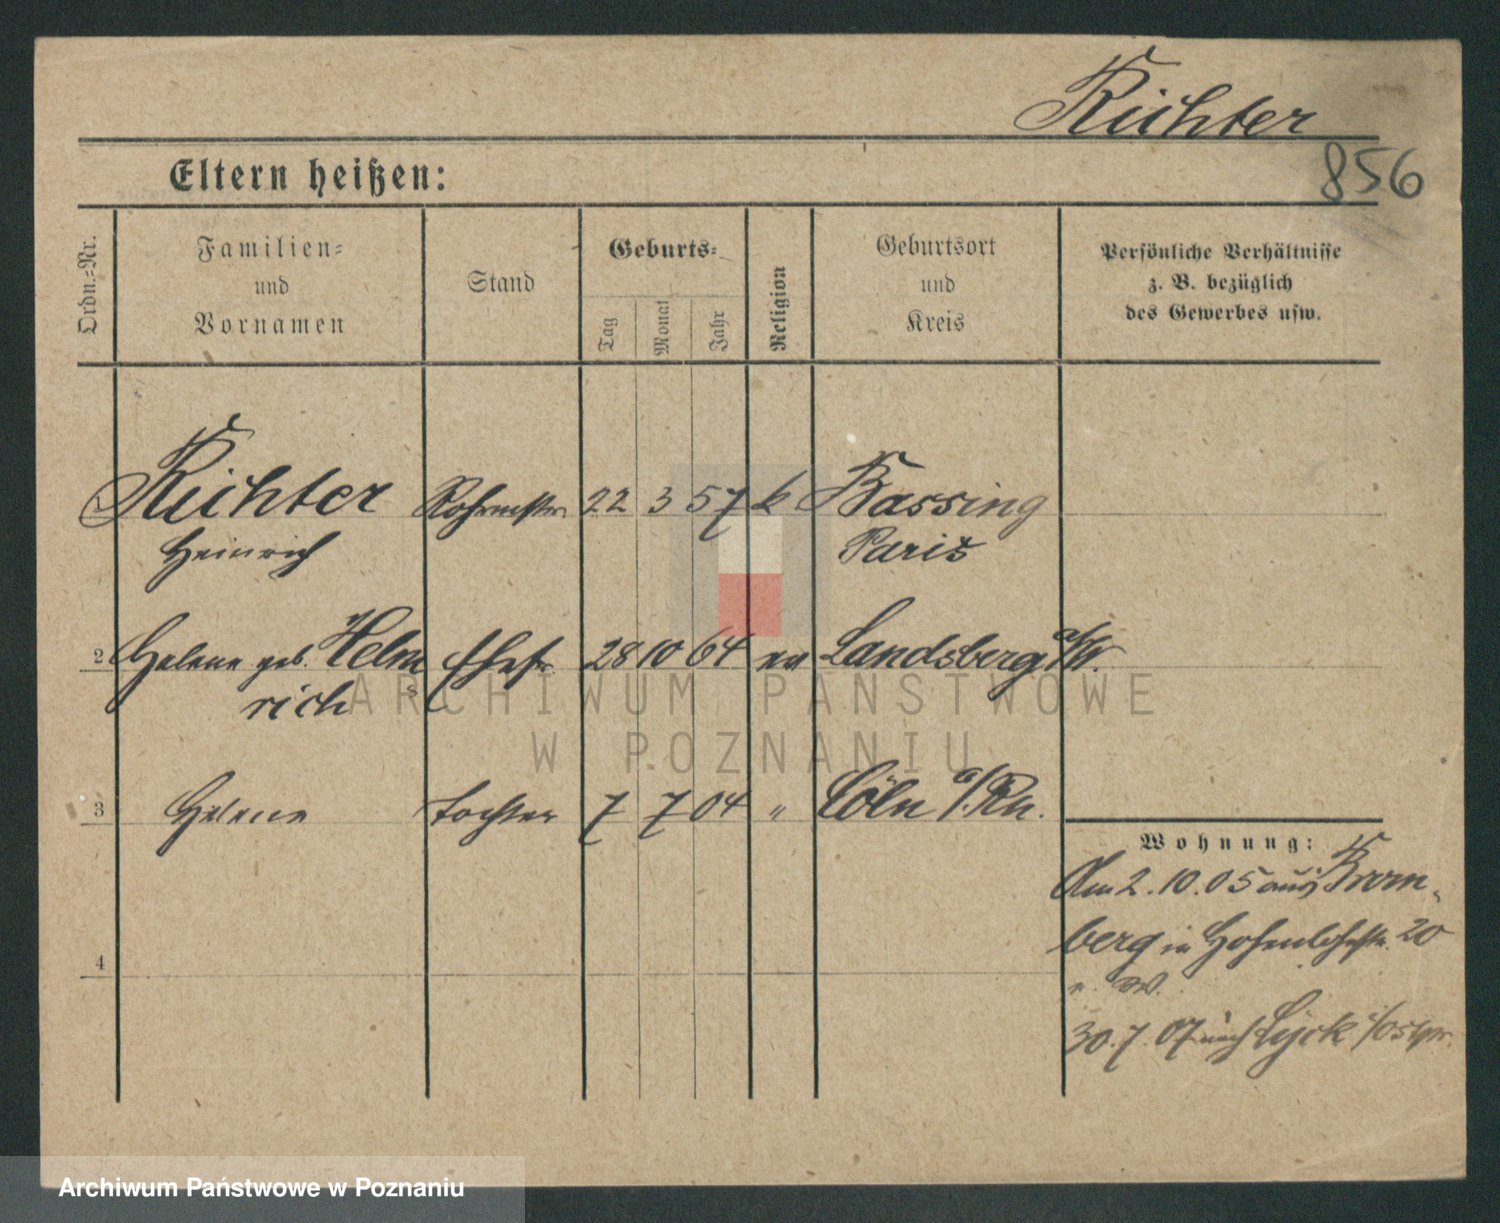 Richter
856
Eltern heißen:
Ordn.=Nr.
Familien=
und
Vornamen
Stand
Geburts=
Tag
Monat
Jahr
Religion
Geburtsort
und
Kreis
Persönliche Verhältnisse
z. B. bezüglich
des Gewerbes usw.
Richter 22 3 57 k Bassing
Heinrich Paris
2 Helene geb. Helm Ehefr. 28 10 64 ev Landsberg a/W.
rich
3 Helene Tochter 7 7 04 " Cöln a/Rh.
4
Wohnung:
Am 2.10.05 aus Brom-
berg in Hohenlohestr. 20
30.7.07 nach Lyck i/Ostpr.
ARCHIWUM PAŃSTWOWE
W POZNANIU
Archiwum Państwowe w Poznaniu